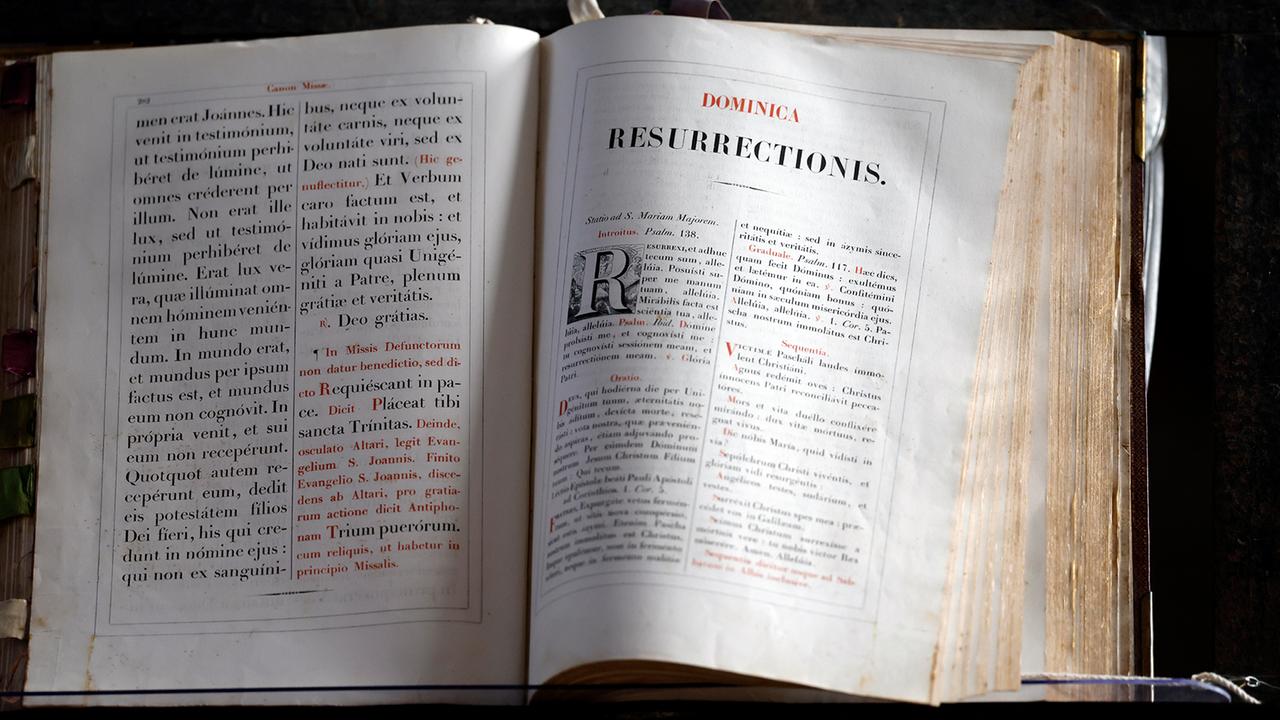 202
Canon Missæ.
men erat Joánnes. Hic
venit in testimónium,
ut testimónium perhi-
béret de lúmine, ut
omnes créderent per
illum. Non erat ille
lux, sed ut testimó-
nium perhibéret de
lúmine. Erat lux ve-
ra, quæ illúminat om-
nem hóminem venién-
tem in hunc mun-
dum. In mundo erat,
et mundus per ipsum
factus est, et mundus
eum non cognóvit. In
própria venit, et sui
eum non recepérunt.
Quotquot autem re-
cepérunt eum, dedit
eis potestátem fílios
Dei fíeri, his qui cre-
dunt in nómine ejus :
qui non ex sanguíni-
bus, neque ex volun-
táte carnis, neque ex
voluntáte viri, sed ex
Deo nati sunt. (Hic ge-
nuflectitur.) Et Verbum
caro factum est, et
habitávit in nobis : et
vídimus glóriam ejus,
glóriam quasi Unigé-
niti a Patre, plenum
grátiæ et veritátis.
℟. Deo grátias.
¶ In Missis Defunctorum
non datur benedictio, sed di-
cto Requiéscant in pa-
ce. Dicit Pláceat tibi
sancta Trínitas. Deinde,
osculato Altari, legit Evan-
gelium S. Joannis. Finito
Evangelio S. Joannis, disce-
dens ab Altari, pro gratia-
rum actione dicit Antipho-
nam Trium puerórum.
cum reliquis, ut habetur in
principio Missalis.
DOMINICA
RESURRECTIONIS.
Statio ad S. Mariam Majorem.
Introitus. Psalm. 138.
RESURREXI, et adhuc
tecum sum, alle-
lúia. Posuísti su-
per me manum
tuam, allelúia.
Mirábilis facta est
sciéntia tua, alle-
lúia, allelúia. Psalm. Ibid. Dómine
probásti me, et cognovísti me :
tu cognovísti sessiónem meam, et
resurrectiónem meam. ℣. Glória
Patri.
Oratio.
Deus, qui hodiérna die per Uni-
génitum tuum, æternitátis no-
bis áditum, devícta morte, rese-
rásti : vota nostra, quæ prævenién-
do aspíras, étiam adjuvándo pro-
séquere. Per eúmdem Dóminum
nostrum Jesum Christum Fílium
tuum : Qui tecum.
Léctio Epístolæ beáti Pauli Apóstoli
ad Corínthios. 1. Cor. 5.
Fratres, Expurgáte vetus fermén-
tum, ut sitis nova conspérsio,
sicut estis ázymi. Etenim Pascha
nostrum immolátus est Christus.
Itaque epulémur, non in ferménto
véteri, neque in ferménto malítiæ
et nequítiæ : sed in ázymis since-
ritátis et veritátis.
Graduale. Psalm. 117. Hæc dies,
quam fecit Dóminus : exultémus
et lætémur in ea. ℣. Confitémini
Dómino, quóniam bonus : quó-
niam in sæculum misericórdia ejus.
Allelúia, allelúia. ℣. 1. Cor. 5. Pa-
scha nostrum immolátus est Chri-
stus.
Sequentia.
VICTIMÆ Pascháli laudes immo-
lent Christiáni.
Agnus redémit oves : Christus
ínnocens Patri reconciliávit pecca-
tóres.
Mors et vita duéllo conflixére
mirándo : dux vitæ mórtuus, re-
gnat vivus.
Dic nobis María, quid vidísti in
via?
Sepúlchrum Christi vivéntis, et
glóriam vidi resurgéntis :
Angélicos testes, sudárium, et
vestes.
Surréxit Christus spes mea : præ-
cédet vos in Galilǽam.
Scimus Christum surrexísse a
mórtuis vere : tu nobis victor Rex
miserére. Amen. Allelúia.
Sequentia dicitur usque ad Sab-
batum in Albis inclusive.